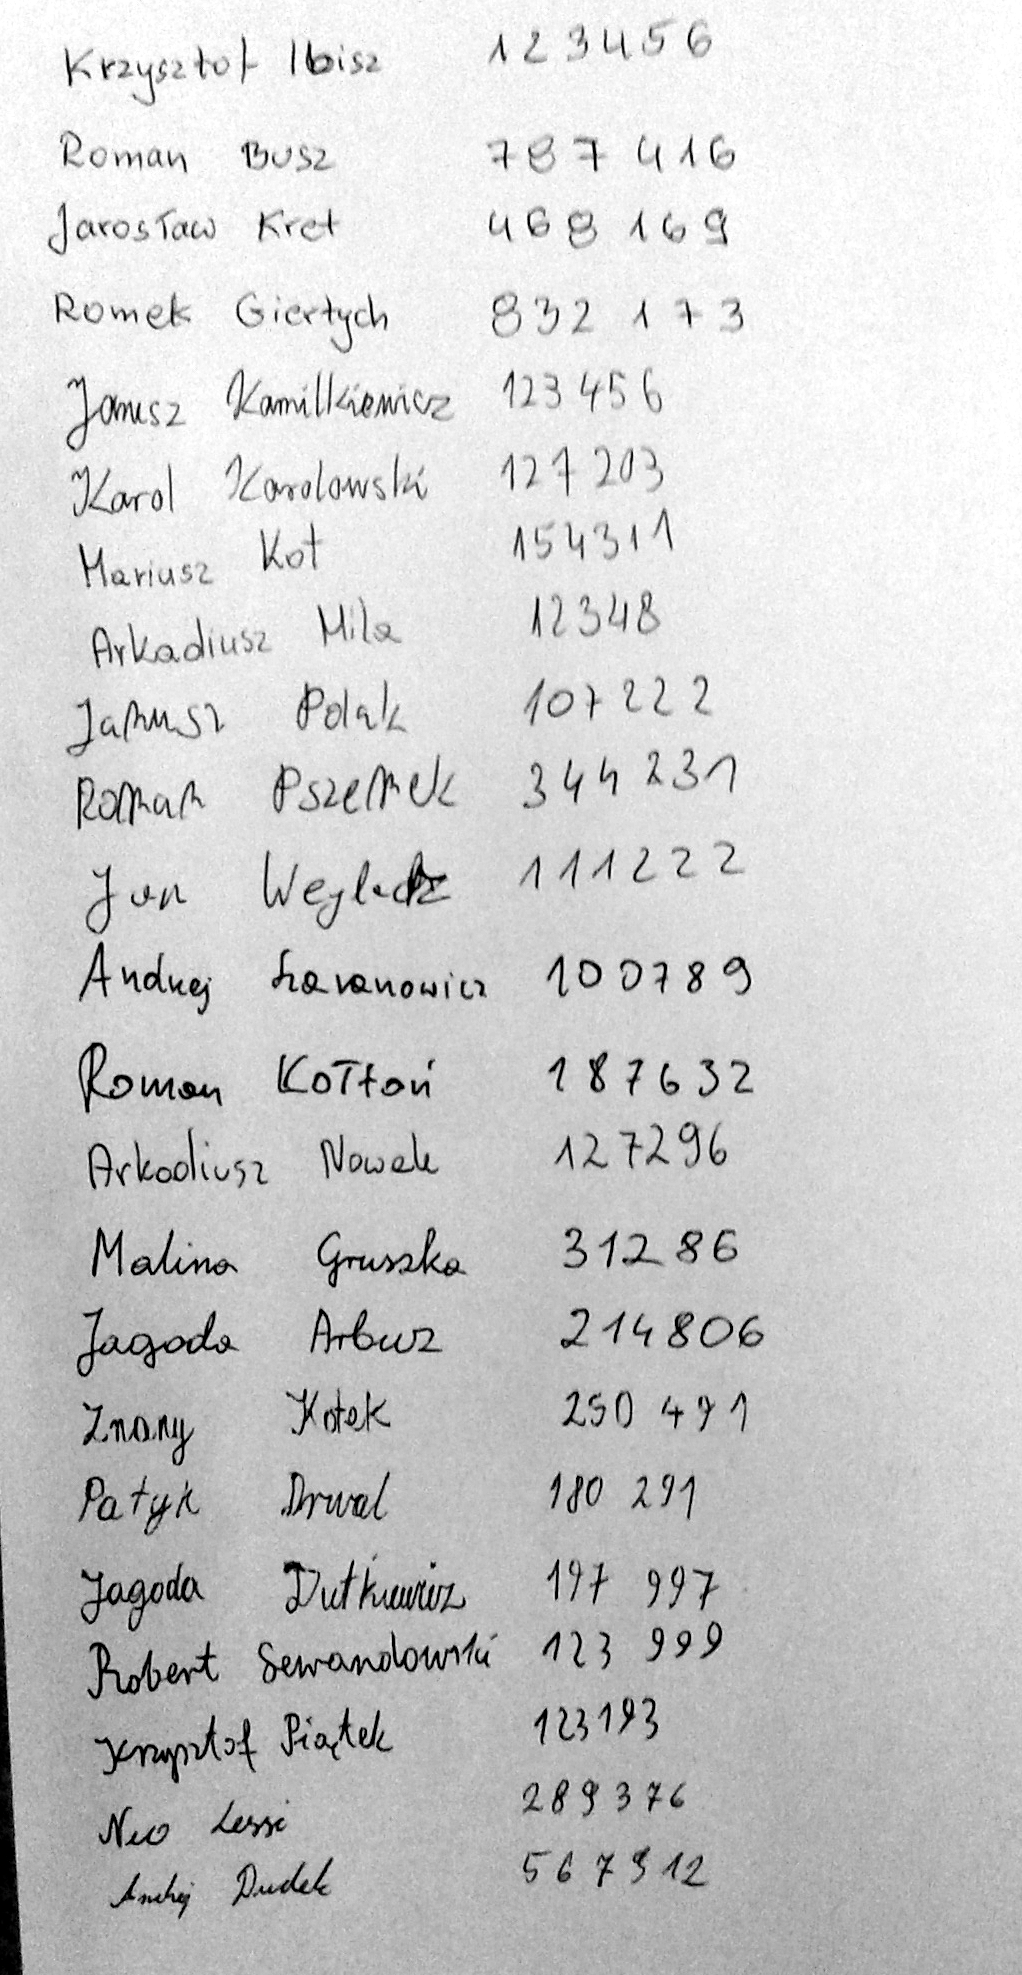 Krzysztof Ibisz 123456
Roman Busz 787 416
Jarosław Kret 468 169
Romek Giertych 832 173
Janusz Kamilkiewicz 123456
Karol Karolowski 127 203
Mariusz Kot 154311
Arkadiusz Mila 12348
Janusz Polak 107222
Roman Pszemek 344 231
Jan 111222
Andrzej 100789
Roman Kołtoń 187632
Arkadiusz Nowak 127296
Malina Gruszka 31286
Jagoda Arbuz 214806
Znany Kotek 250 491
Patyk Drwal 180 291
Jagoda Dutkiewicz 197 997
Robert Lewandowski 123 999
Krzysztof Piątek 123193
Neo Lessi 289376
Andrzej Dudek 567912